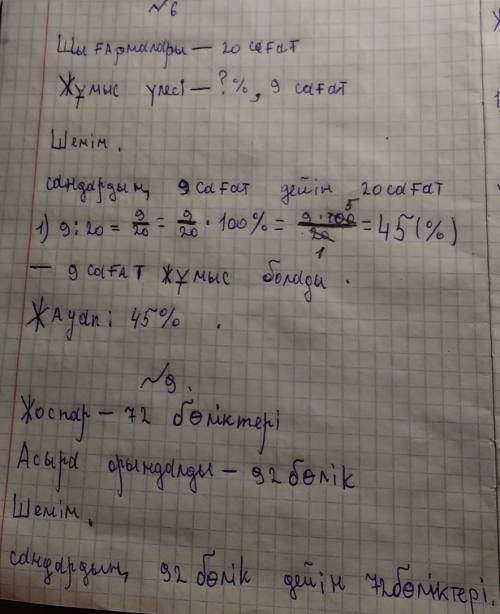 №6
Шығармалары — 20 сағат
Жұмыс үлесі — ? %, 9 сағат
Шешім.
сандардың 9 сағат дейін 20 сағат
1) 9:20 = 9/20 = 9/20 · 100% = 9·100 5/20 1 = 45 (%)
— 9 сағат жұмыс болады.
Жауап: 45% .
№9.
Жоспар — 72 бөліктері
Асыра орындалды — 92 бөлік
Шешім.
сандардың 92 бөлік дейін 72 бөліктері.